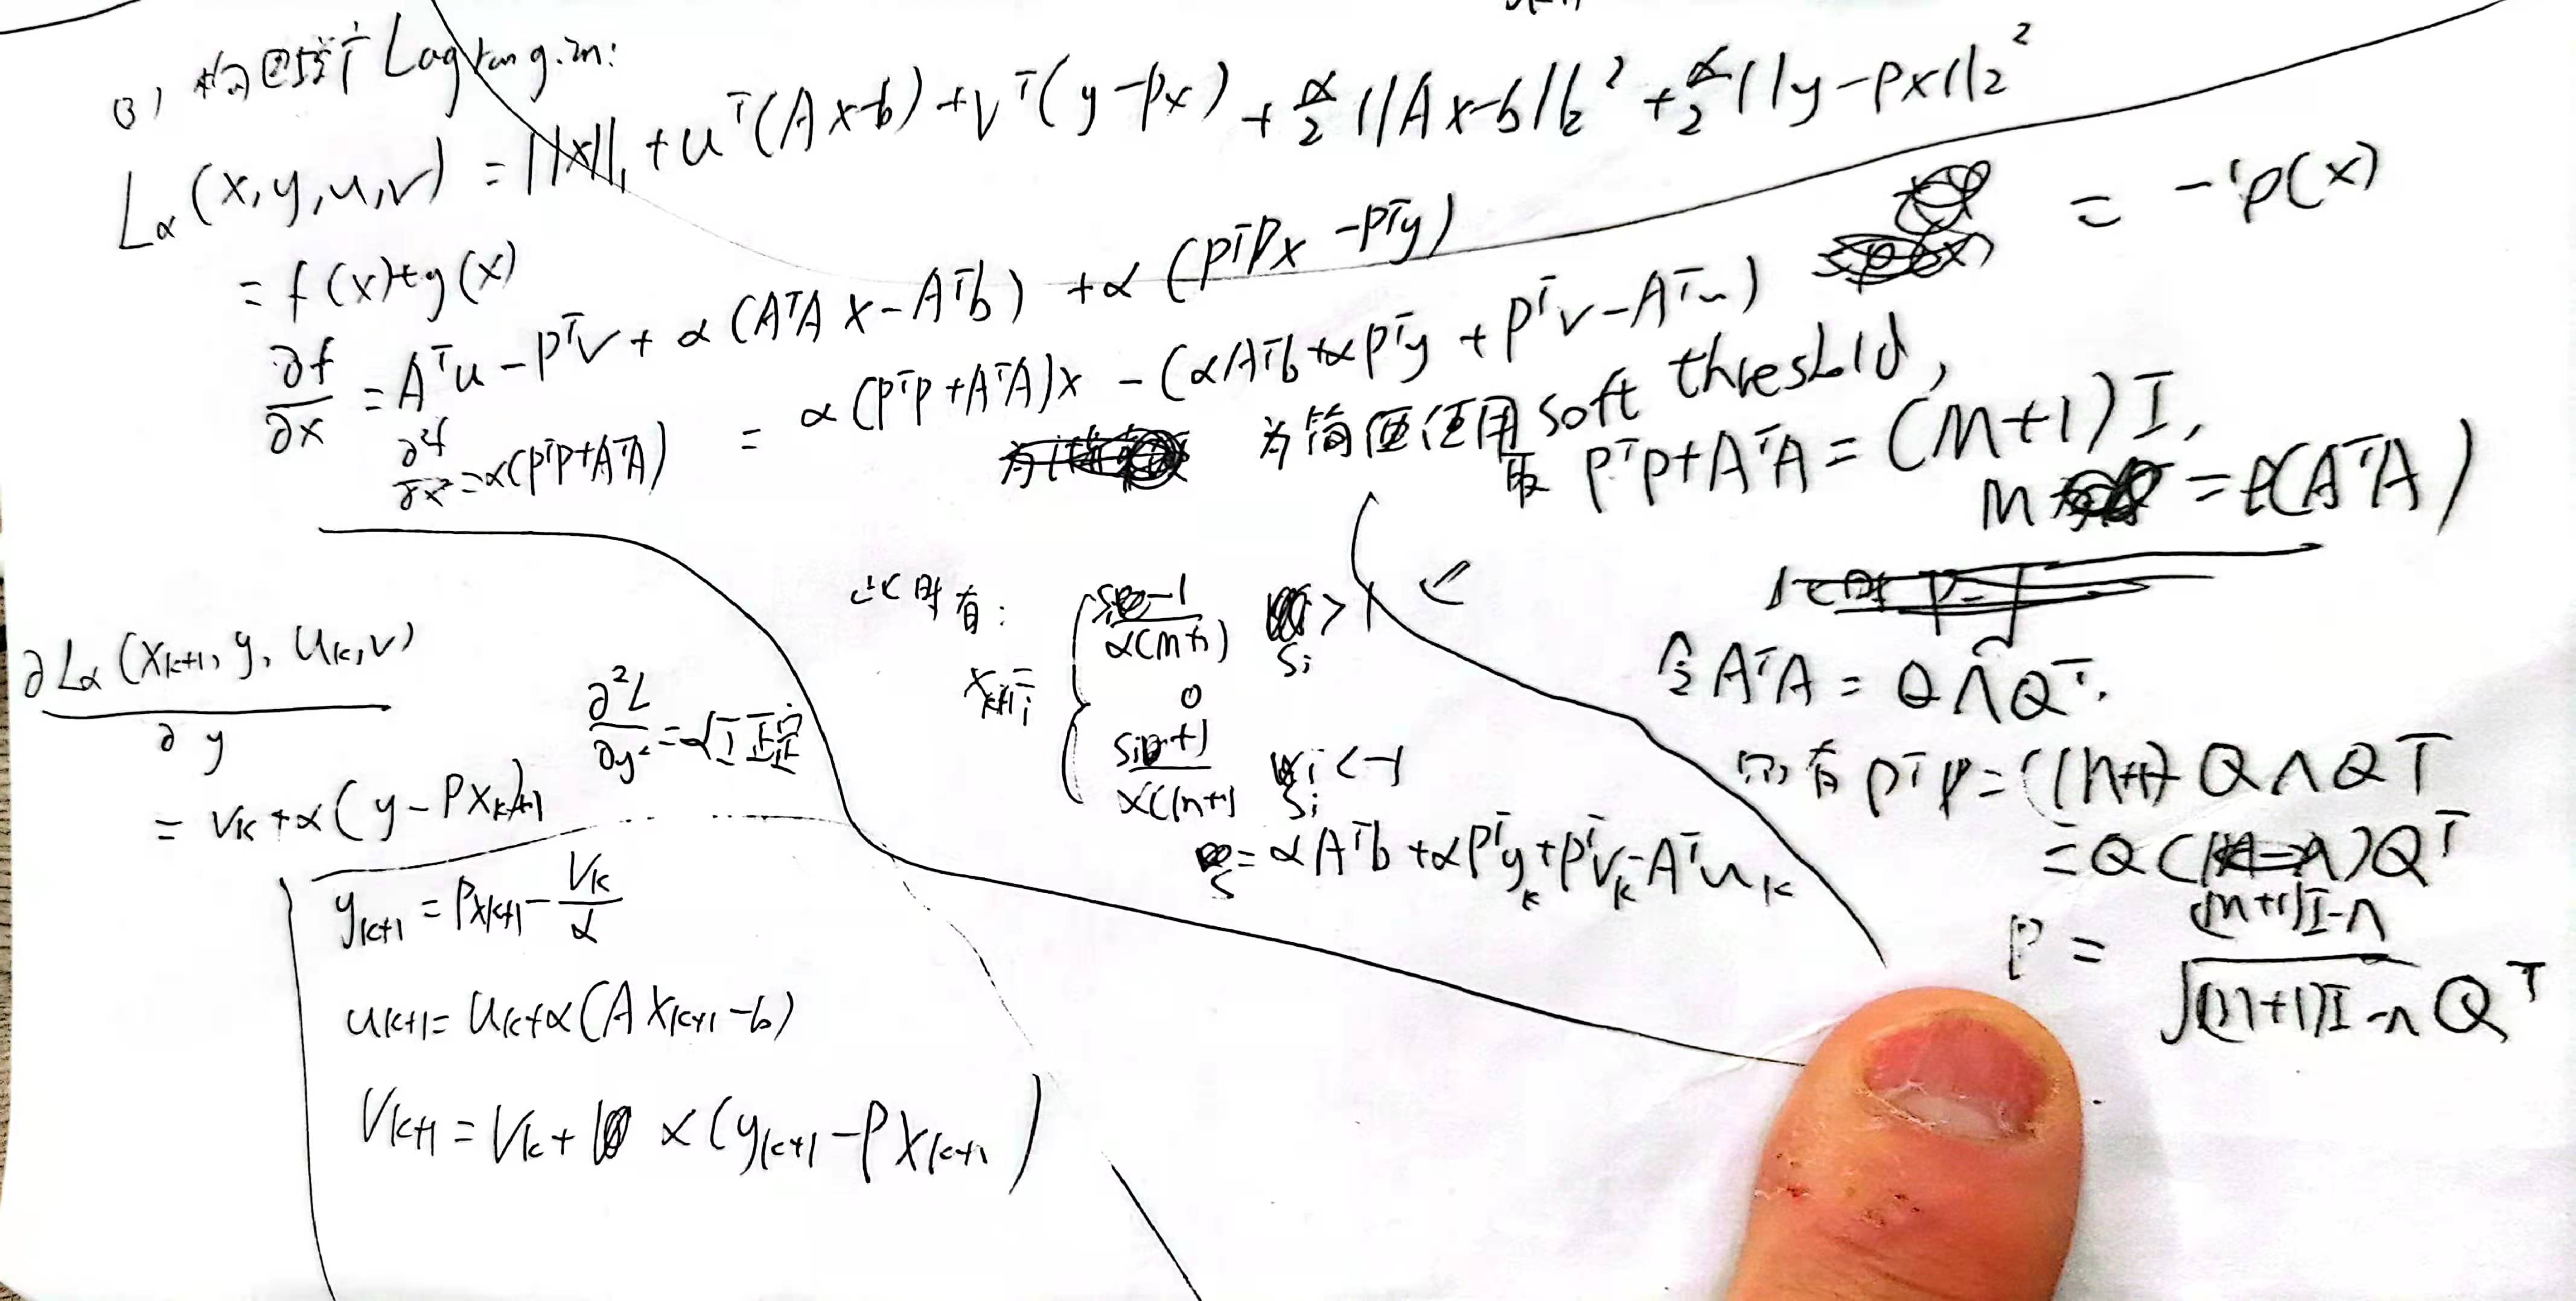 (3) 构造增广Lagrangin:
Lα(x,y,u,v) = ||x||₁ + uᵀ(Ax-b) + vᵀ(y-Px) + α/2 ||Ax-b||₂² + α/2 ||y-Px||₂²
= f(x)+g(x)
∂f/∂x = Aᵀu - Pᵀv + α(AᵀAx - Aᵀb) + α(PᵀPx - Pᵀy)
= α(PᵀP+AᵀA)x - (αAᵀb+αPᵀy + Pᵀv - Aᵀu)
= -'ρ(x)
∂²f/∂x² = α(PᵀP+AᵀA)
为简便使用soft threshold,
取 PᵀP+AᵀA = (M+1)I,
M = ρ(AᵀA)
令 AᵀA = QΛQᵀ.
则有 PᵀP = (M+1) QΛQᵀ
= Q((M+1)I-Λ)Qᵀ
P = √((M+1)I-Λ) Qᵀ
此时有:
xₖ₊₁ᵢ = { (sᵢ-1)/(α(M+1)) sᵢ > 1
0
(sᵢ+1)/(α(M+1)) sᵢ < -1
s = αAᵀb + αPᵀyₖ + Pᵀvₖ - Aᵀuₖ
∂Lα(xₖ₊₁, y, uₖ, v)/∂y
= vₖ + α(y - Pxₖ₊₁)
∂²L/∂y² = αI 正定
yₖ₊₁ = Pxₖ₊₁ - vₖ/α
uₖ₊₁ = uₖ + α(Axₖ₊₁ - b)
vₖ₊₁ = vₖ + α(yₖ₊₁ - Pxₖ₊₁)